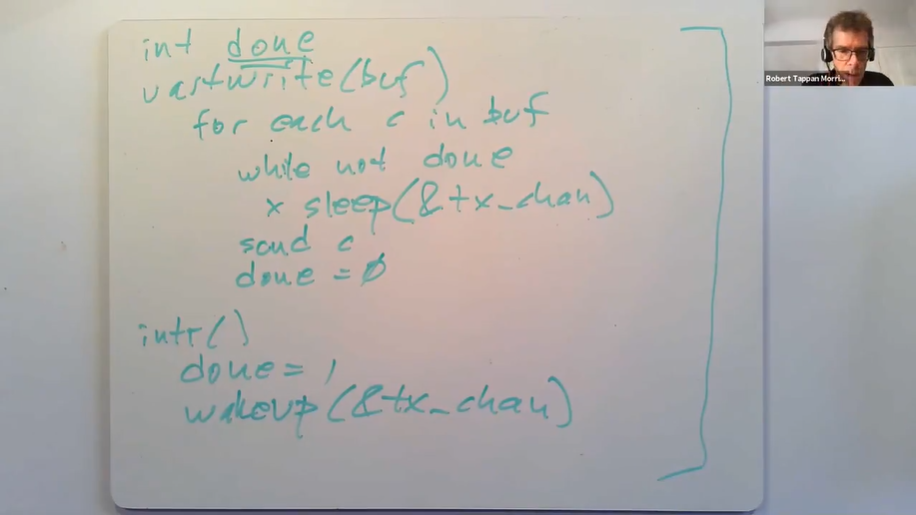 int done
uartwrite(buf)
for each c in buf
while not done
x sleep(&tx_chan)
send c
done = 0
intr()
done = 1
wakeup(&tx_chan)
Robert Tappan Morri...